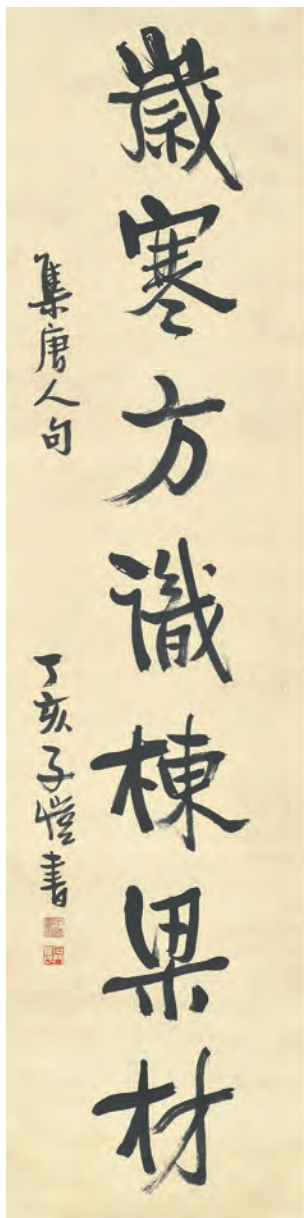 歲寒方識棟梁材
集唐人句
丁亥子愷書